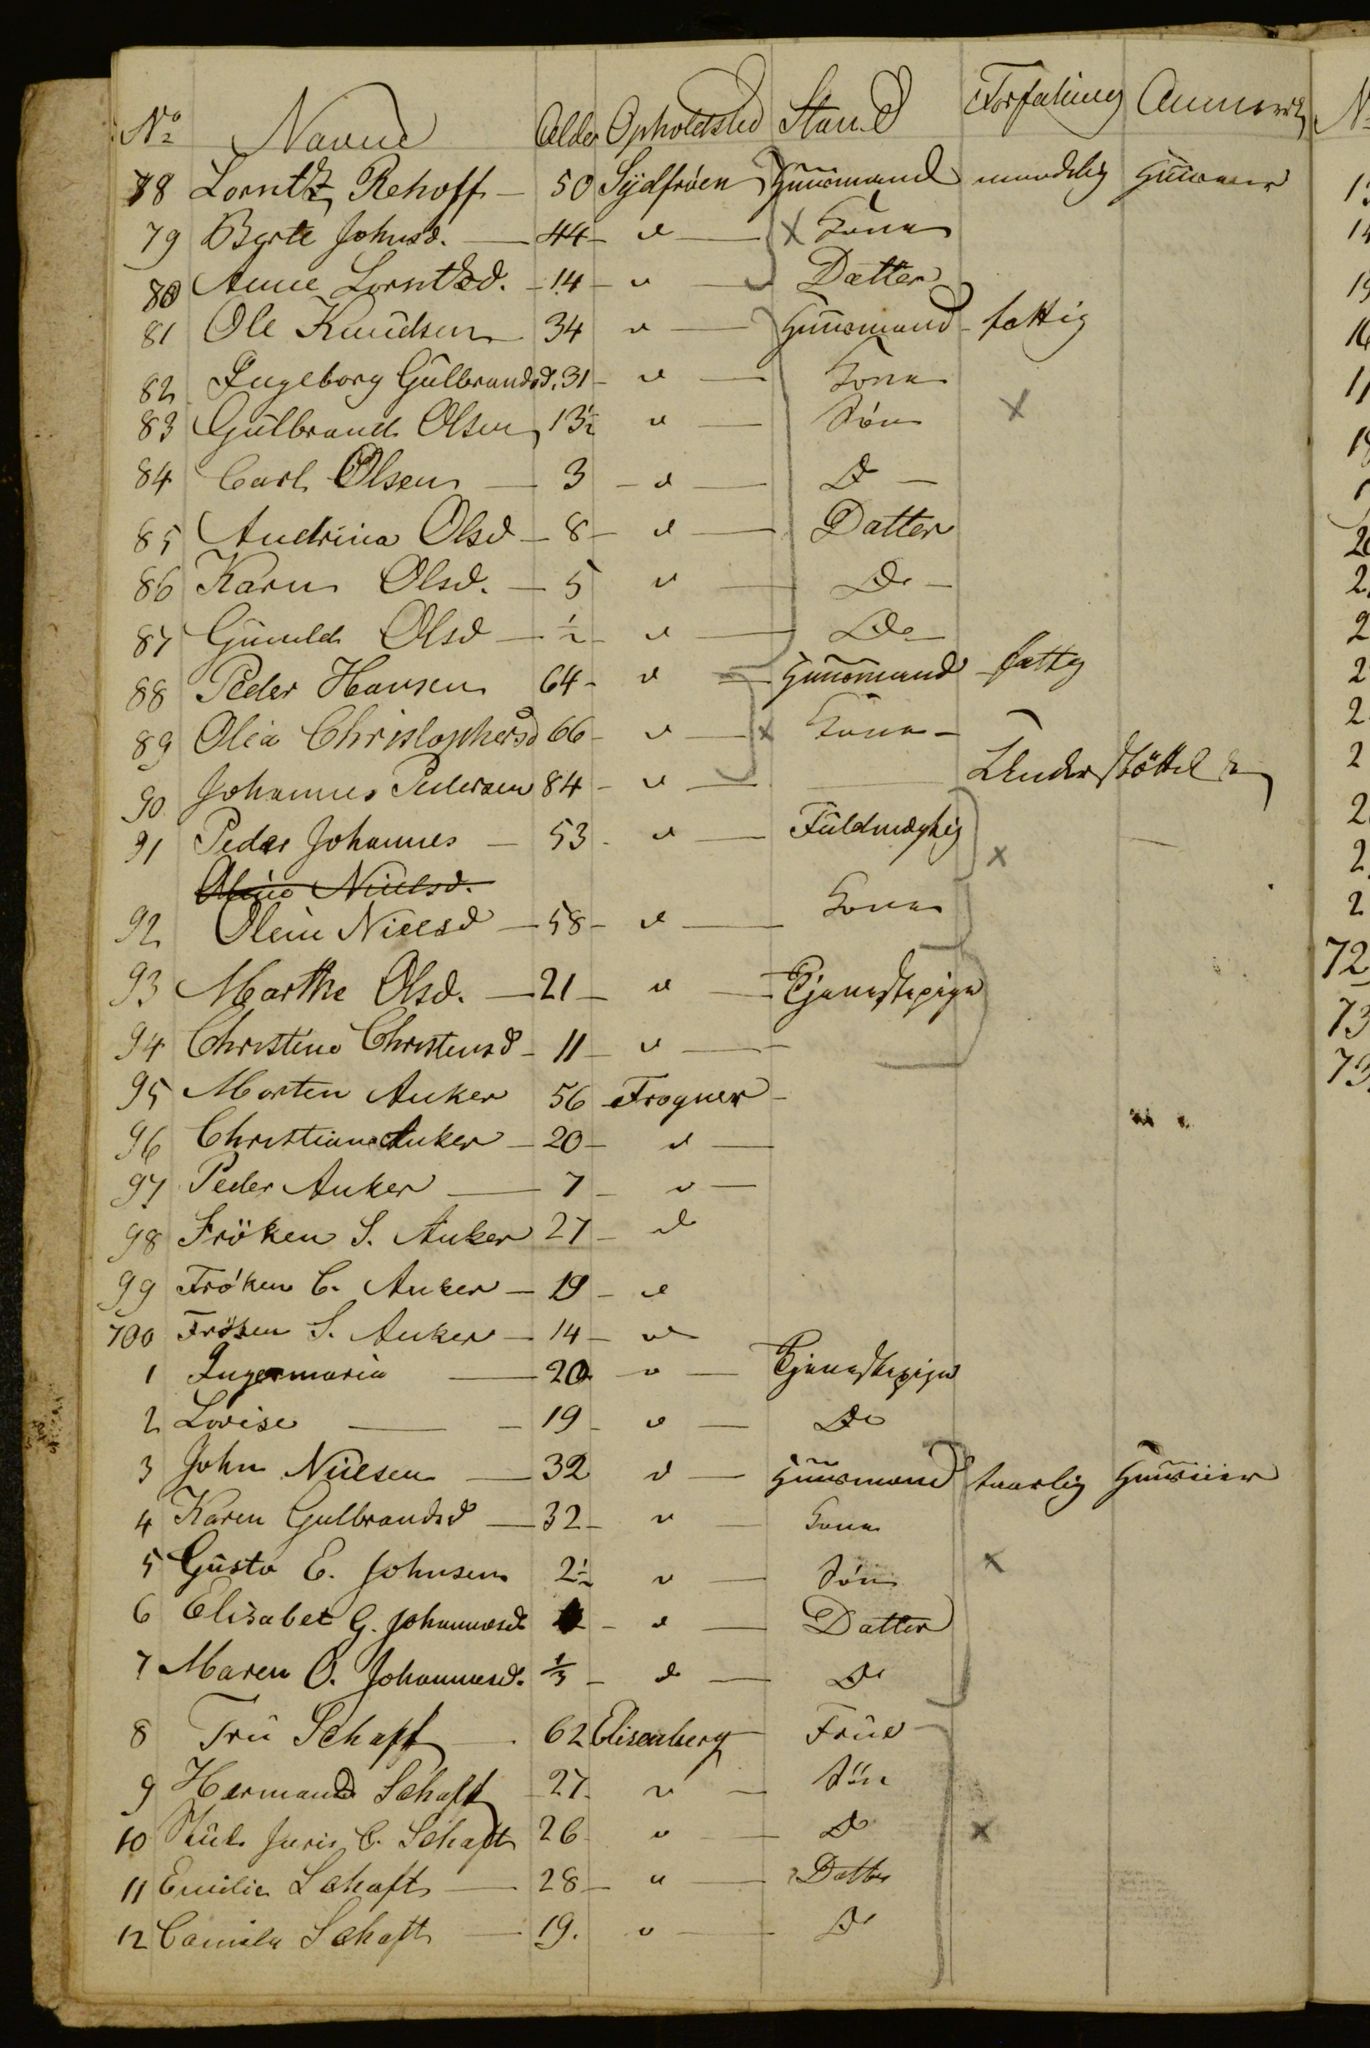 No Navne Alder Opholdsted Stand Forfatning Anmerk
78 Lorntz Rehoff — 50 Sÿdfröen Huusmand maadelig Huuseier
79 Berte Johnsd. — 44 — d — Kone
80 Anne Lorntzd. — 14 — d — Datter
81 Ole Knudsen 34 d — Huusmand — fattig
82 Ingeborg Gulbrandsd. 31 — d — Kone
83 Gulbrand Olsen 13½ d — Søn
84 Carl Olsen — 3 — d — Do —
85 Andrina Olsd — 8 — d — Datter
86 Karn Olsd. — 5 d — Do —
87 Gunild Olsd — ½ — d — Do —
88 Peder Hansen 64 — d — Huusmand — fattig
89 Olia Christophersd 66 — d — Kone —
90 Johannes Pedersen 84 — d — Understöttelse
91 Peder Johannes — 53 — d — Fuldmægtig
Oline Nielsd.
92 Oline Nielsd — 58 — d — Kone
93 Marthe Olsd. — 21 — d — Tjenestepige
94 Christine Christensd — 11 — d —
95 Morten Anker 56 — Frogner —
96 Christian Anker — 20 — d —
97 Peder Anker — 7 — d —
98 Fröken S. Anker 27 — d
99 Fröken C. Anker — 19 — d
700 Fröken S. Anker — 14 — d
1 Ingermaria — 20 — d — Tjenestepige
2 Lovise — 19 — d — Do
3 John Nielsen — 32 d — Huusmand taarlig Huuseier
4 Karen Gulbrandsd — 32 — d — Kone
5 Gusta E. Johnsen 2½ d — Søn
6 Elisabet G. Johannesd — d — Datter
7 Maren O. Johannesd. ⅓ — d — Do
8 Fru Schaft — 62 Elisenberg — Frue —
9 Hermand Schaft 27 — d — Søn
10 Stud. Juris C. Schaft 26 d — Do
11 Emilie Schaft — 28 — d — Datter
12 Camila Schaft — 19. d — Do